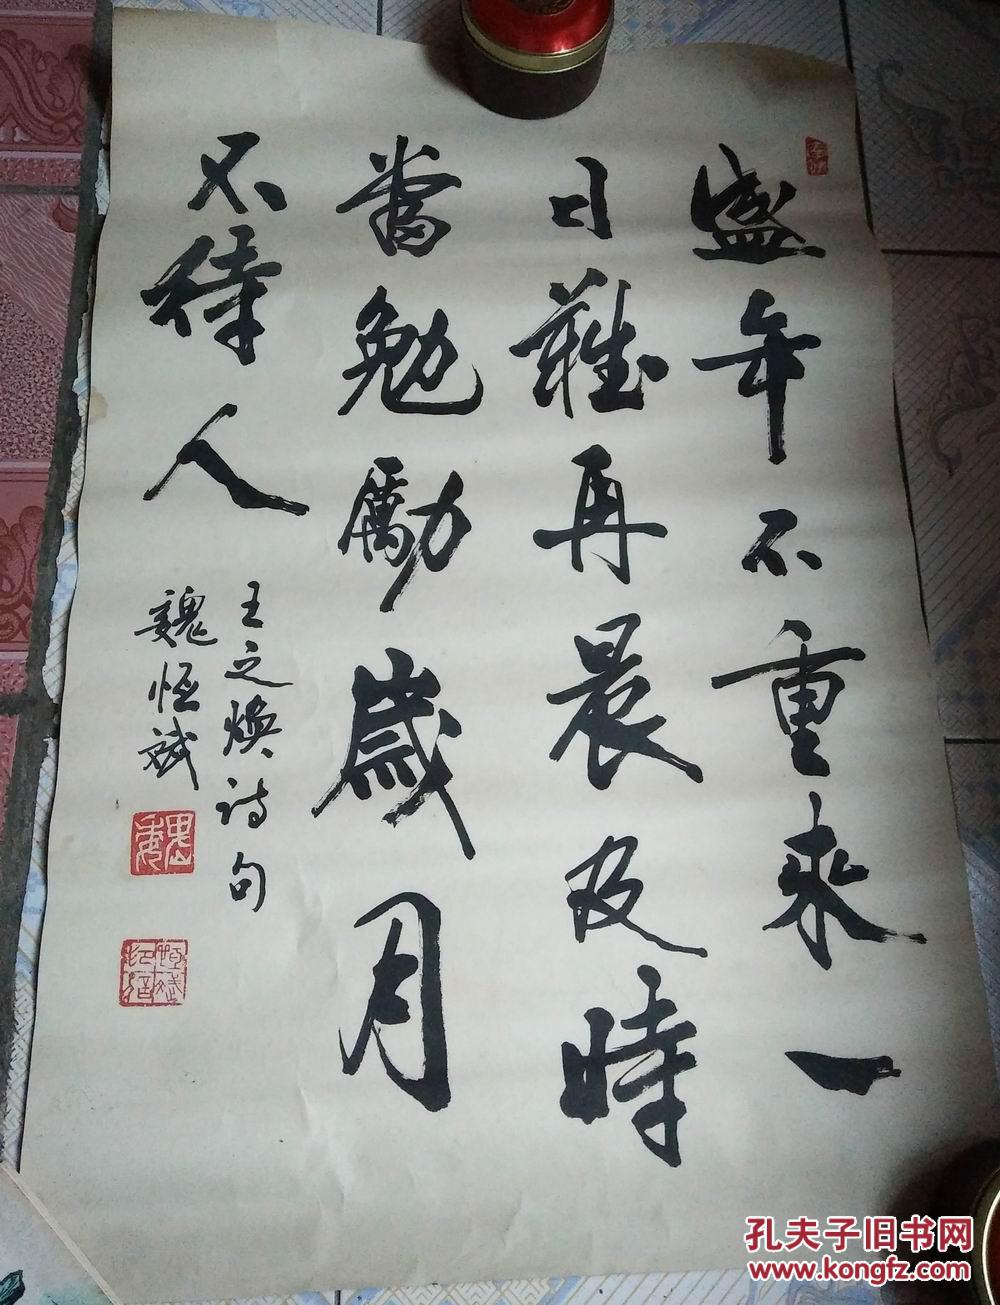 盛年不重來一
日難再晨及時
當勉勵歲月
不待人
王之煥诗句
魏恒斌
魏
孔夫子旧书网
www.kongfz.com